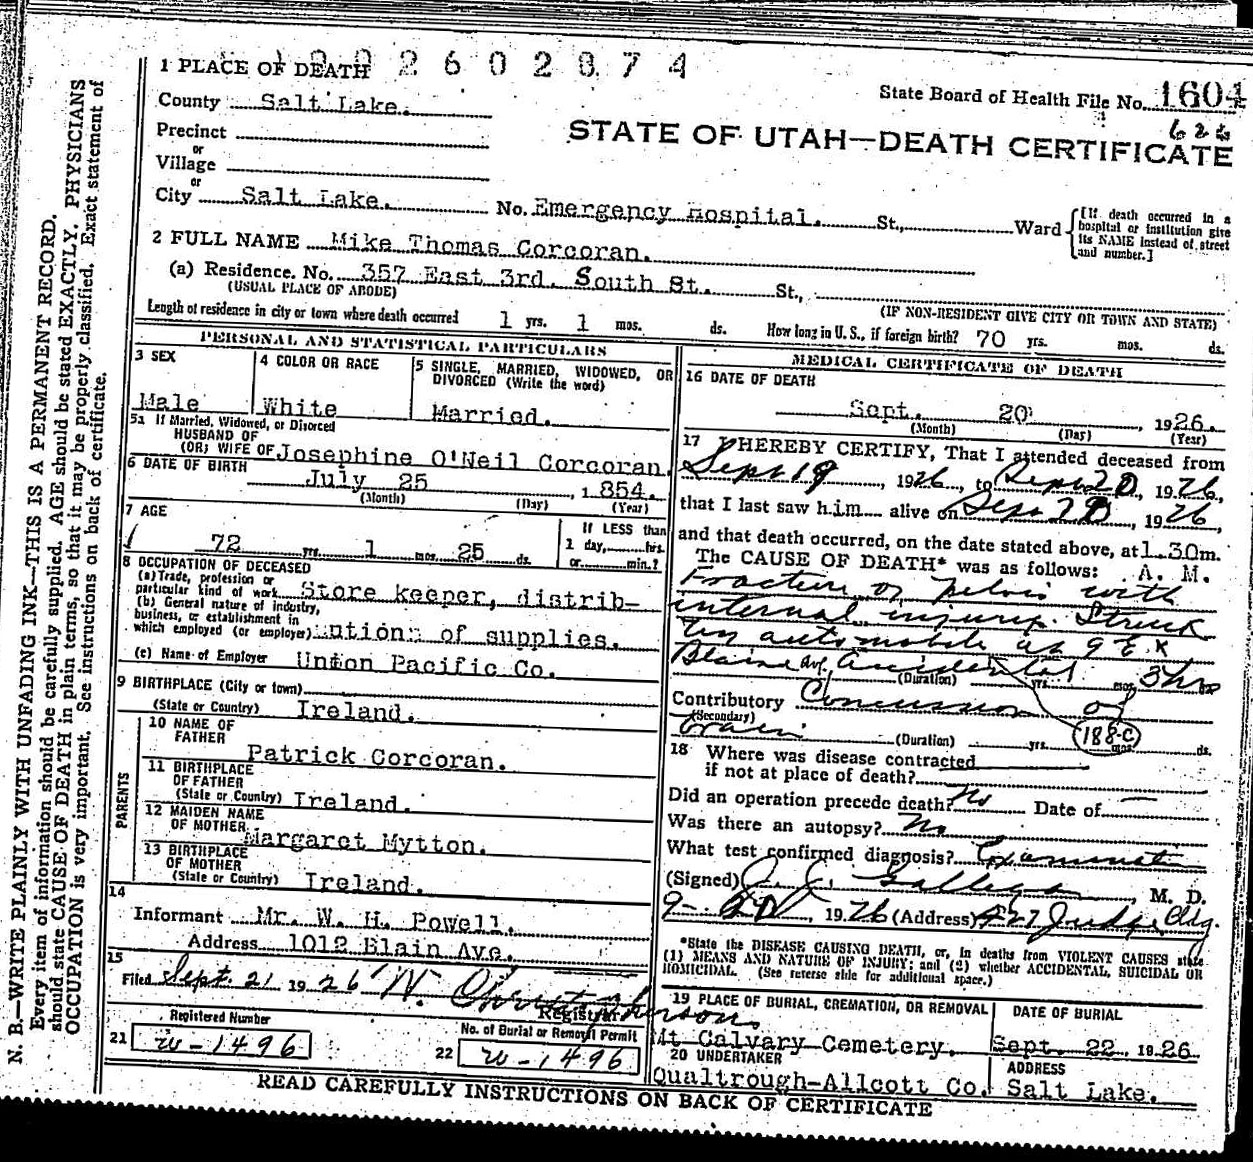 1 PLACE OF DEATH
2602874
County Salt Lake.
State Board of Health File No. 1604
Precinct
or
Village
STATE OF UTAH—DEATH CERTIFICATE
or
City Salt Lake. No. Emergency Hospital. St., Ward
[If death occurred in a hospital or institution give its NAME instead of street and number.]
2 FULL NAME Mike Thomas Corcoran.
(a) Residence. No. 357 East 3rd. South St. St.,
(USUAL PLACE OF ABODE)
(IF NON-RESIDENT GIVE CITY OR TOWN AND STATE)
Length of residence in city or town where death occurred 1 yrs. 1 mos. ds. How long in U.S., if foreign birth? 70 yrs. mos. ds.
PERSONAL AND STATISTICAL PARTICULARS
3 SEX
Male
4 COLOR OR RACE
White
5 SINGLE, MARRIED, WIDOWED, OR DIVORCED (Write the word)
Married.
5a If Married, Widowed, or Divorced
HUSBAND OF
(OR) WIFE OF Josephine O'Neil Corcoran.
6 DATE OF BIRTH
July 25, 1854.
(Month) (Day) (Year)
7 AGE
72 yrs. 1 mos. 25 ds.
If LESS than
1 day, hrs.
or min.?
8 OCCUPATION OF DECEASED
(a) Trade, profession or
particular kind of work Store keeper, distrib-
(b) General nature of industry,
business, or establishment in
which employed (or employer) ution of supplies.
(c) Name of Employer Union Pacific Co.
9 BIRTHPLACE (City or town)
(State or Country) Ireland.
PARENTS
10 NAME OF
FATHER
Patrick Corcoran.
11 BIRTHPLACE
OF FATHER
(State or Country) Ireland.
12 MAIDEN NAME
OF MOTHER Margaret Mytton.
13 BIRTHPLACE
OF MOTHER
(State or Country) Ireland.
14
Informant Mr. W. H. Powell.
Address 1012 Blain Ave.
15
Filed Sept. 21 1926
Registrar
Registered Number
21 W-1496
No. of Burial or Removal Permit
22 W-1496
MEDICAL CERTIFICATE OF DEATH
16 DATE OF DEATH
Sept. 20, 1926.
(Month) (Day) (Year)
17 I HEREBY CERTIFY, That I attended deceased from
Sept 19, 1926, to Sept 20, 1926,
that I last saw him alive on Sept 20, 1926,
and that death occurred, on the date stated above, at 1.30m.
The CAUSE OF DEATH* was as follows: A. M.
Fracture of pelvis with
internal injury. Struck
by automobile at 9 E. x
Blaine Ave. Accidental
(Duration) yrs. mos. 3 hrs
Contributory Concussion of
(Secondary)
brain (Duration) yrs. mos. ds.
188-C
18 Where was disease contracted
if not at place of death?
Did an operation precede death? No Date of —
Was there an autopsy? No
What test confirmed diagnosis? Examination
(Signed) J. J. Galligan M. D.
9-20, 1926 (Address) 427 Judge Bldg.
*State the DISEASE CAUSING DEATH, or, in deaths from VIOLENT CAUSES state
(1) MEANS AND NATURE OF INJURY; and (2) whether ACCIDENTAL, SUICIDAL OR
HOMICIDAL. (See reverse side for additional space.)
19 PLACE OF BURIAL, CREMATION, OR REMOVAL
Mt Calvary Cemetery.
DATE OF BURIAL
Sept. 22, 1926.
20 UNDERTAKER
Qualtrough-Allcott Co.
ADDRESS
Salt Lake.
READ CAREFULLY INSTRUCTIONS ON BACK OF CERTIFICATE
N. B.—WRITE PLAINLY WITH UNFADING INK—THIS IS A PERMANENT RECORD.
Every item of information should be carefully supplied. AGE should be stated EXACTLY. PHYSICIANS
should state CAUSE OF DEATH in plain terms, so that it may be properly classified. Exact statement of
OCCUPATION is very important. See instructions on back of certificate.